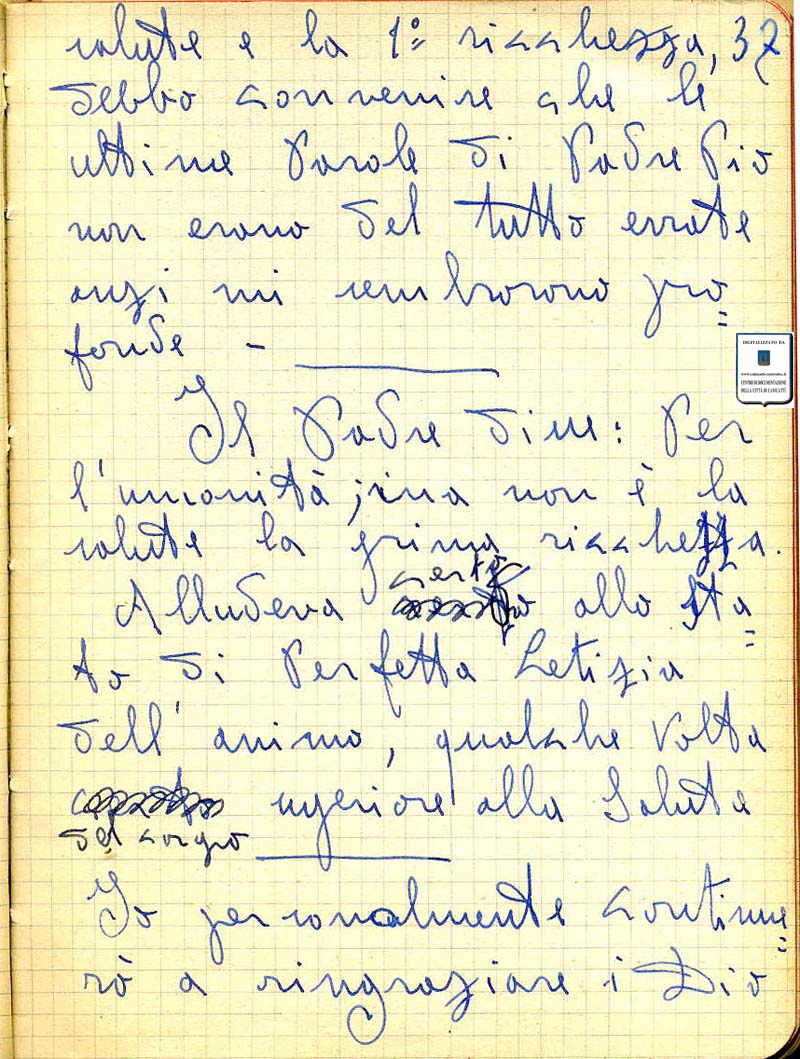 salute e la 1ª ricchezza, 37
debbo convenire che le
ultime parole di Padre Pio
non erano del tutto errate
anzi mi sembrarono pro
fonde -
Il Padre disse: Per
l'umanità
non è la
salute la prima ricchezza.
certo
Alludeva allo sta
to di Perfetta Letizia
dell'animo, qualche volta
superiore alla Salute
del corpo
Io personalmente continue
rò a ringraziare i Dio
DIGITALIZZATO DA
www.canicatti-centrodoc.it
CENTRO DI DOCUMENTAZIONE
DELLA CITTÀ DI CANICATTÌ